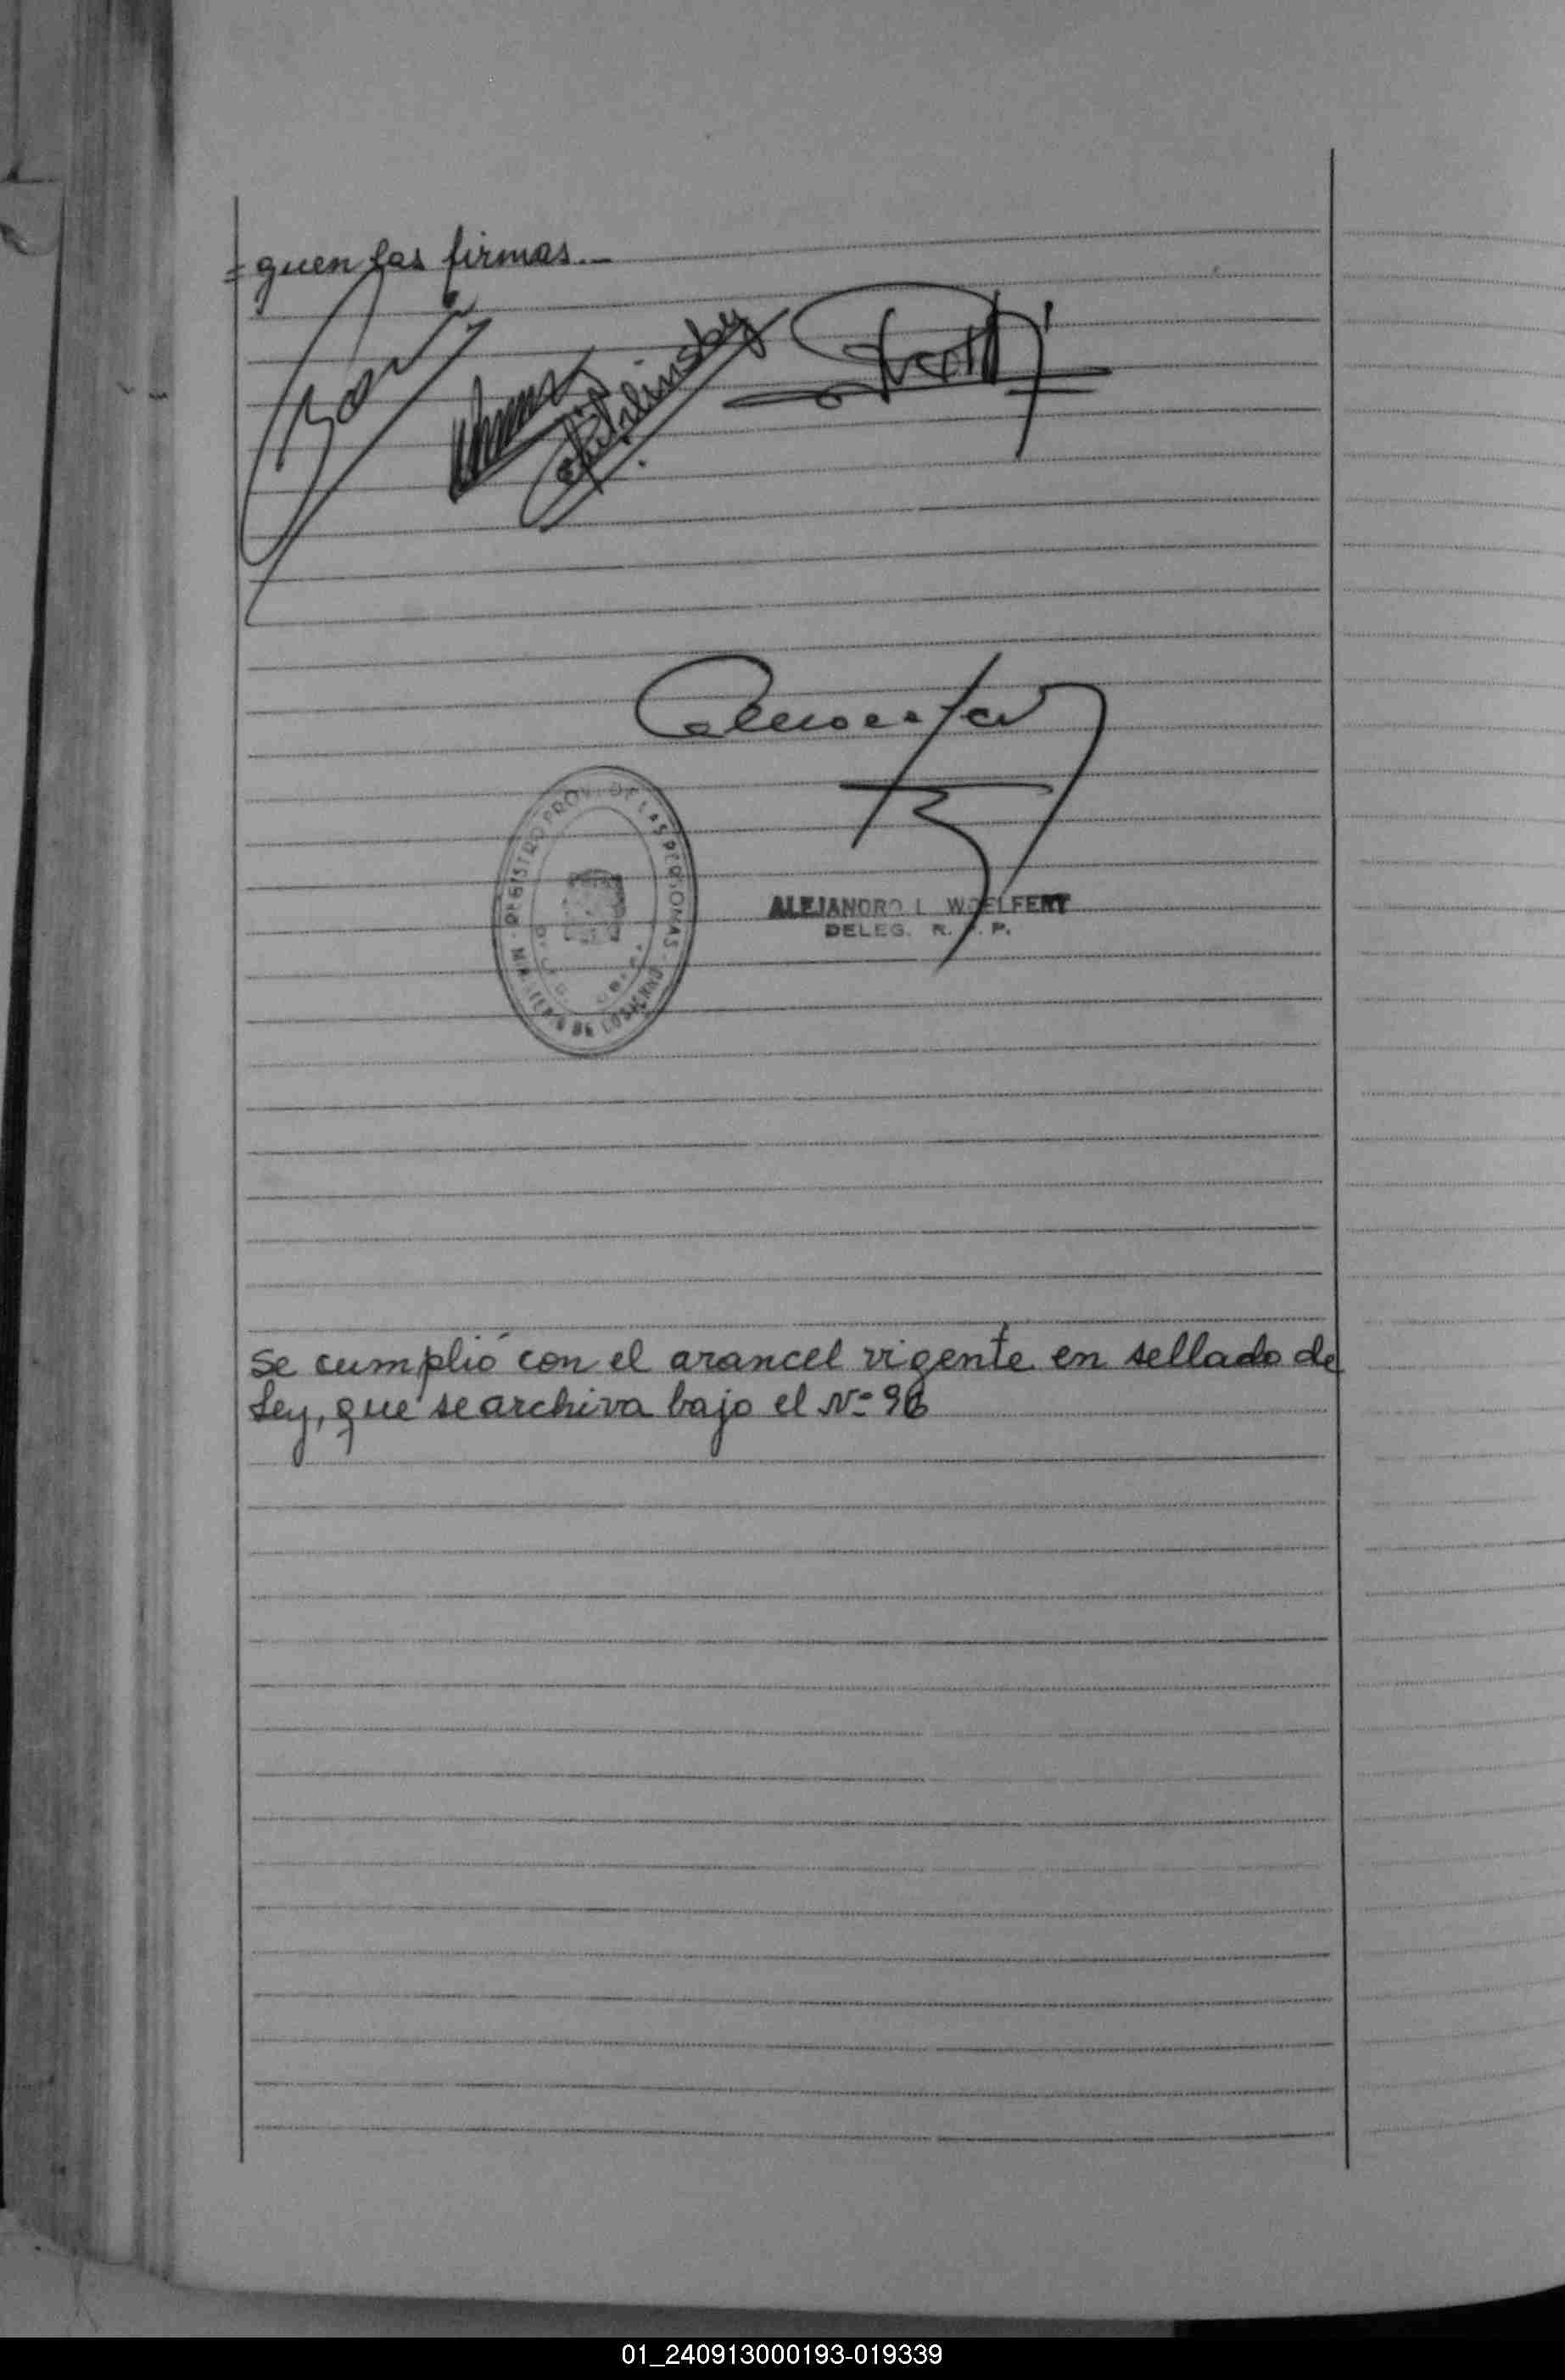 = guen las firmas.—
REGISTRO PROV. DE LAS PERSONAS - MINISTERIO DE GOBIERNO
ALEJANDRO L WOELFERT
DELEG. R. P. P.
Se cumplió con el arancel vigente en sellado de
Ley, que se archiva bajo el Nº
01_240913000193-019339